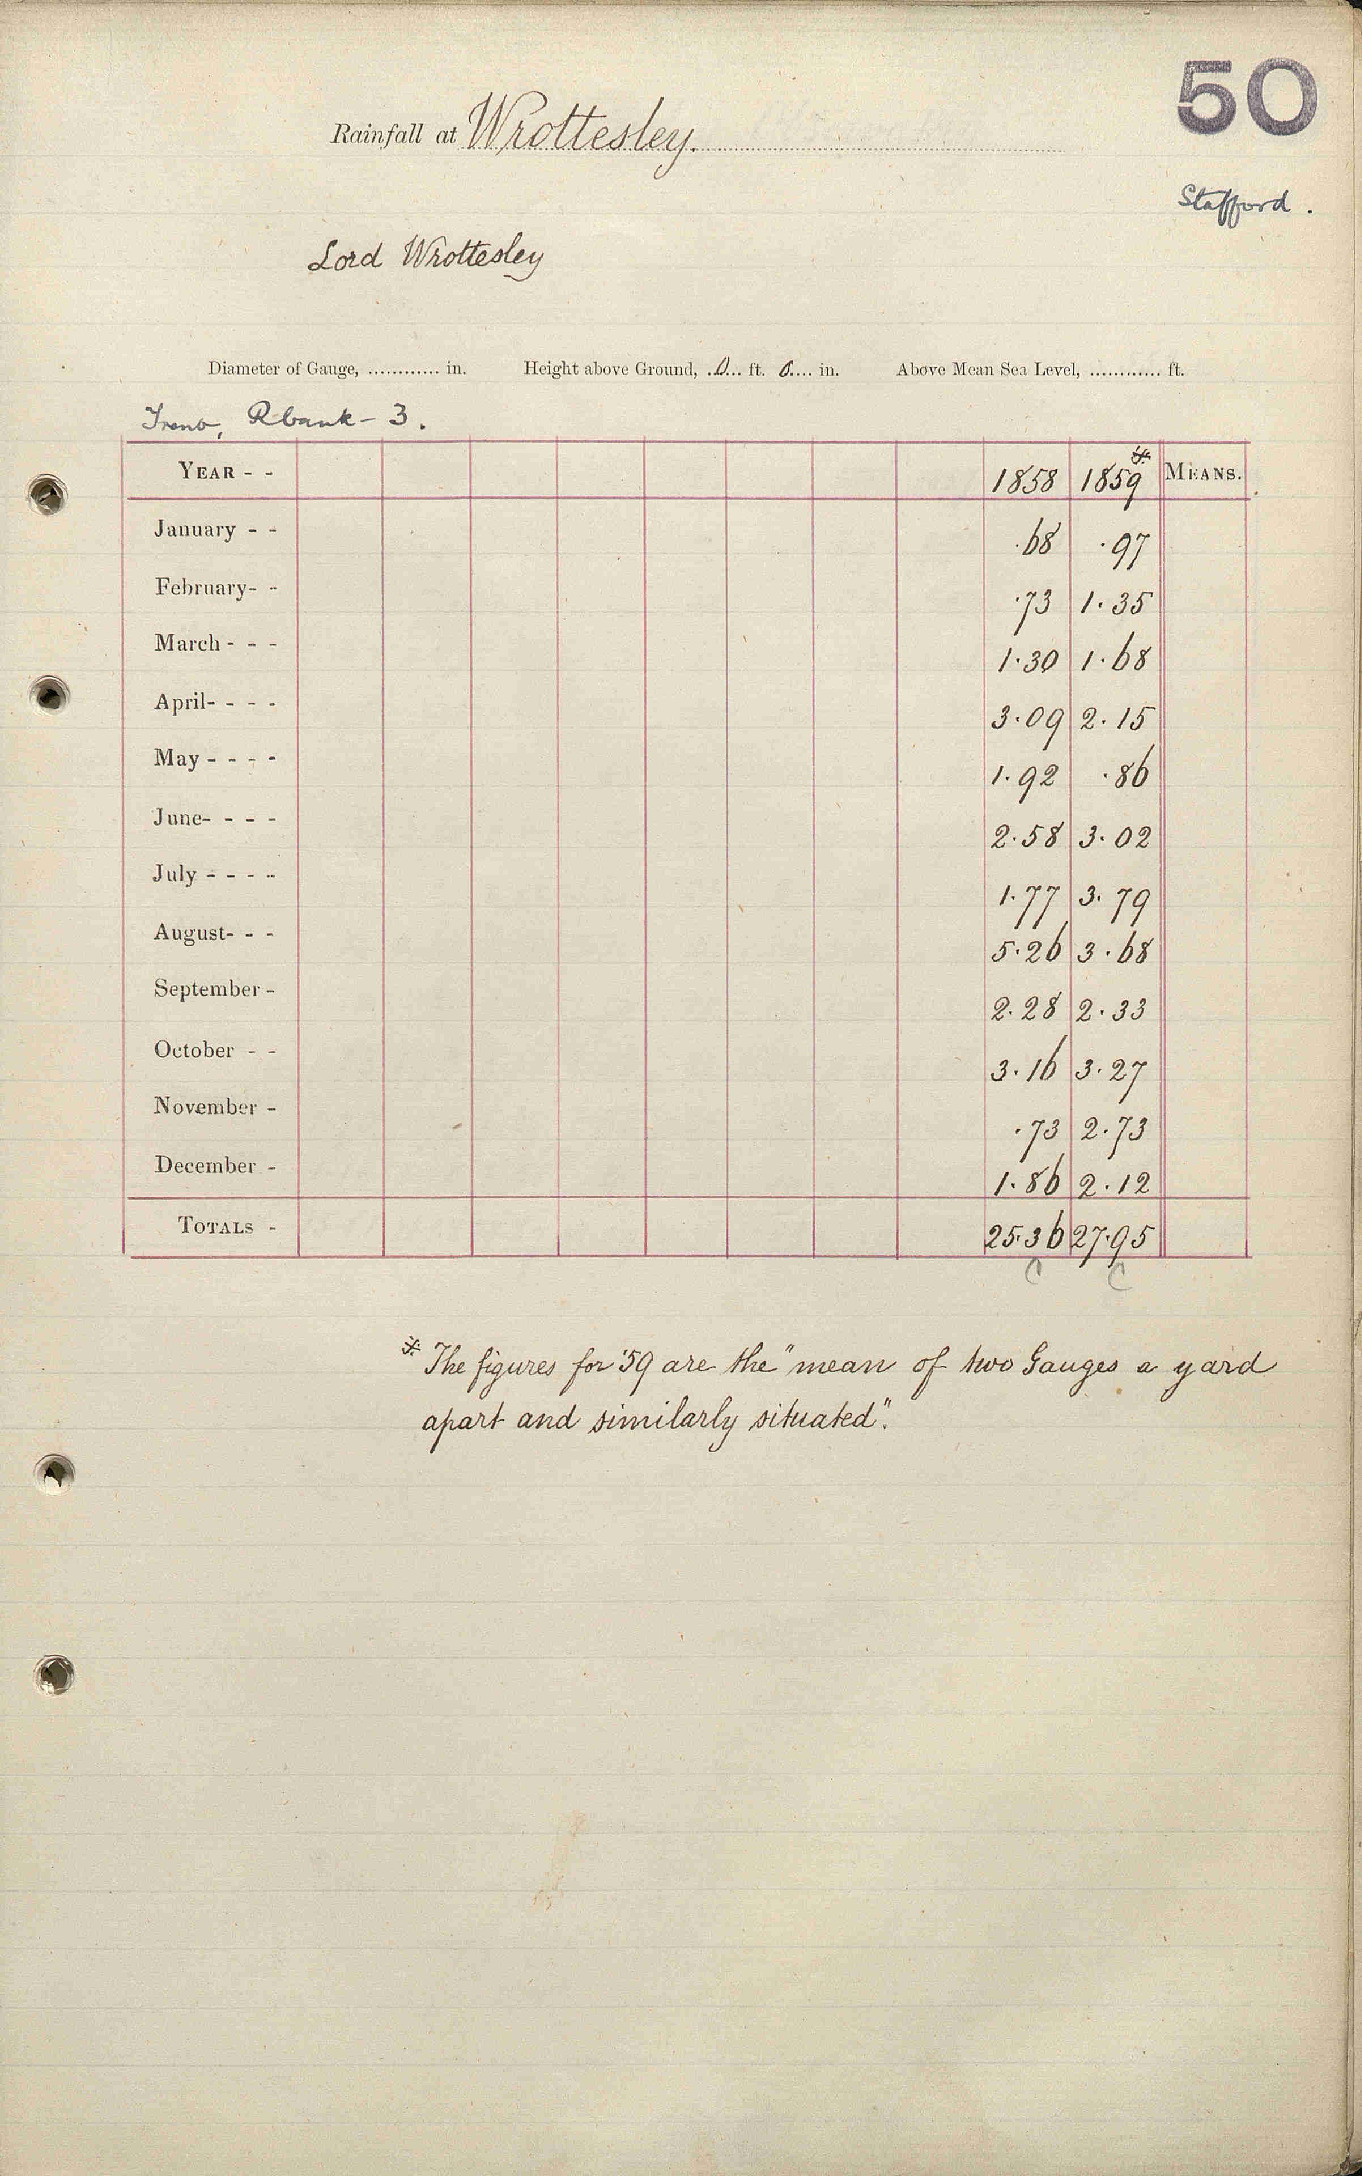 50
Rainfall at Wrottesley.
Stafford.
Lord Wrottesley
Diameter of Gauge, ............ in. Height above Ground, ..0... ft. 6.... in. Above Mean Sea Level, ............ ft.
Trent, R bank - 3.
YEAR - - 1858 1859* MEANS.
January - - .68 .97
February- - .73 1.35
March - - - 1.30 1.68
April- - - - 3.09 2.15
May - - - - 1.92 .86
June- - - - 2.58 3.02
July - - - - 1.77 3.79
August- - - 5.26 3.68
September - 2.28 2.33
October - - 3.16 3.27
November - .73 2.73
December - 1.86 2.12
TOTALS - 25.36 27.95
C C
* The figures for '59 are the "mean of two Gauges a yard
apart and similarly situated".